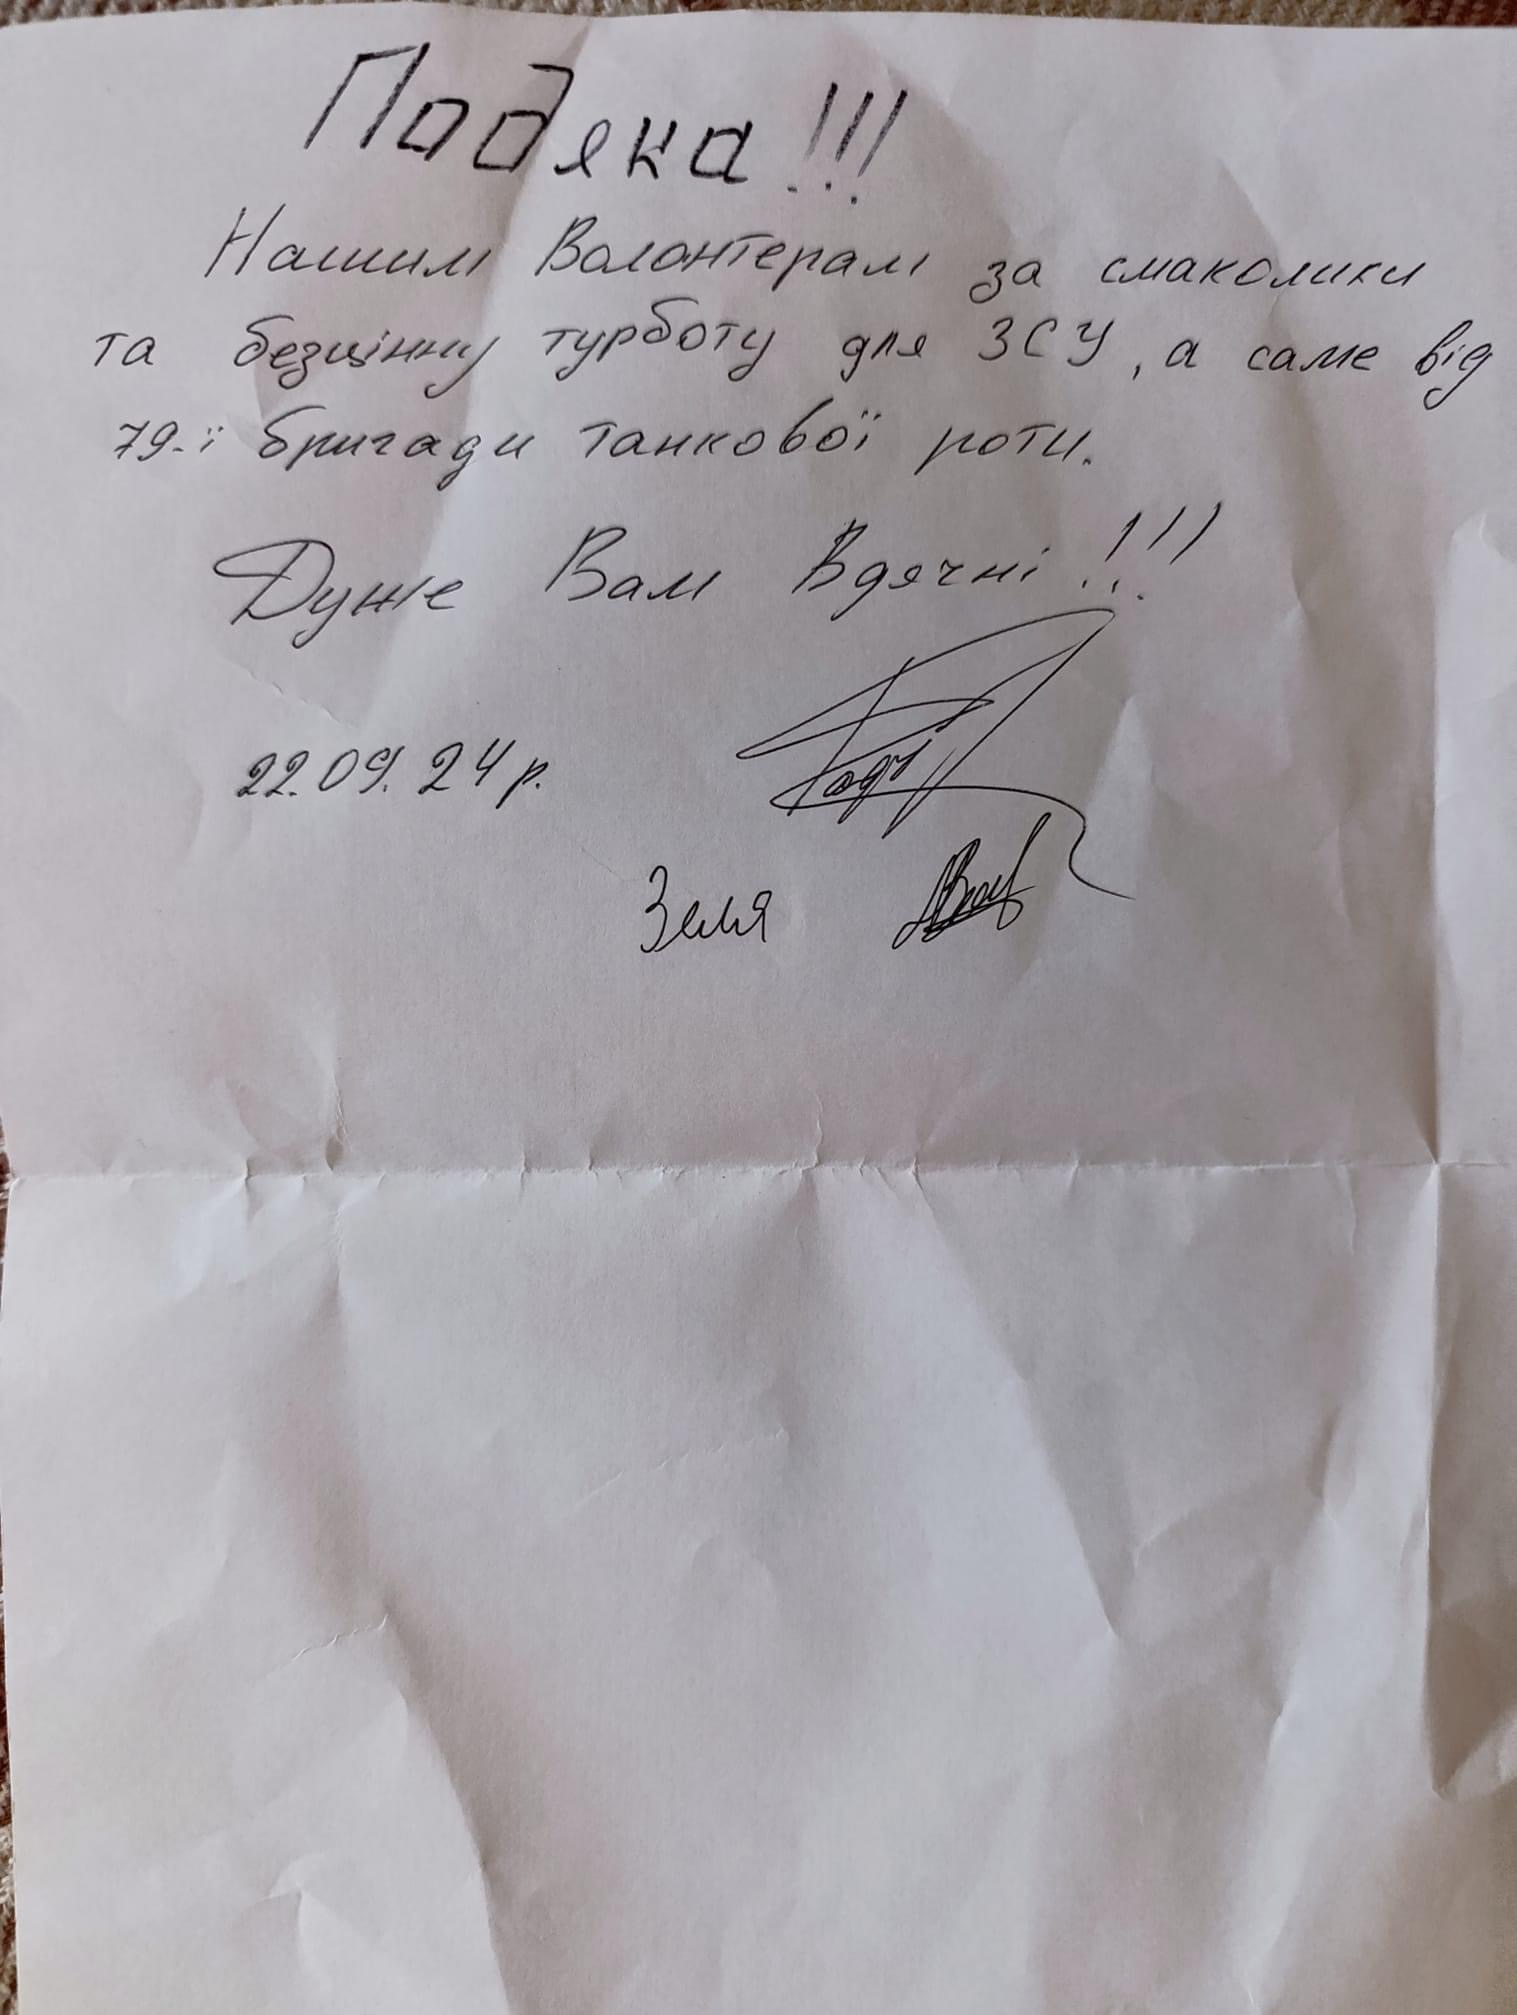 Подяка!!!
Нашим Волонтерам за смаколики
та безцінну турботу для ЗСУ, а саме від
79-ї бригади танкової роти.
Дуже Вам Вдячні!!!
22.09.24р.
Зеля